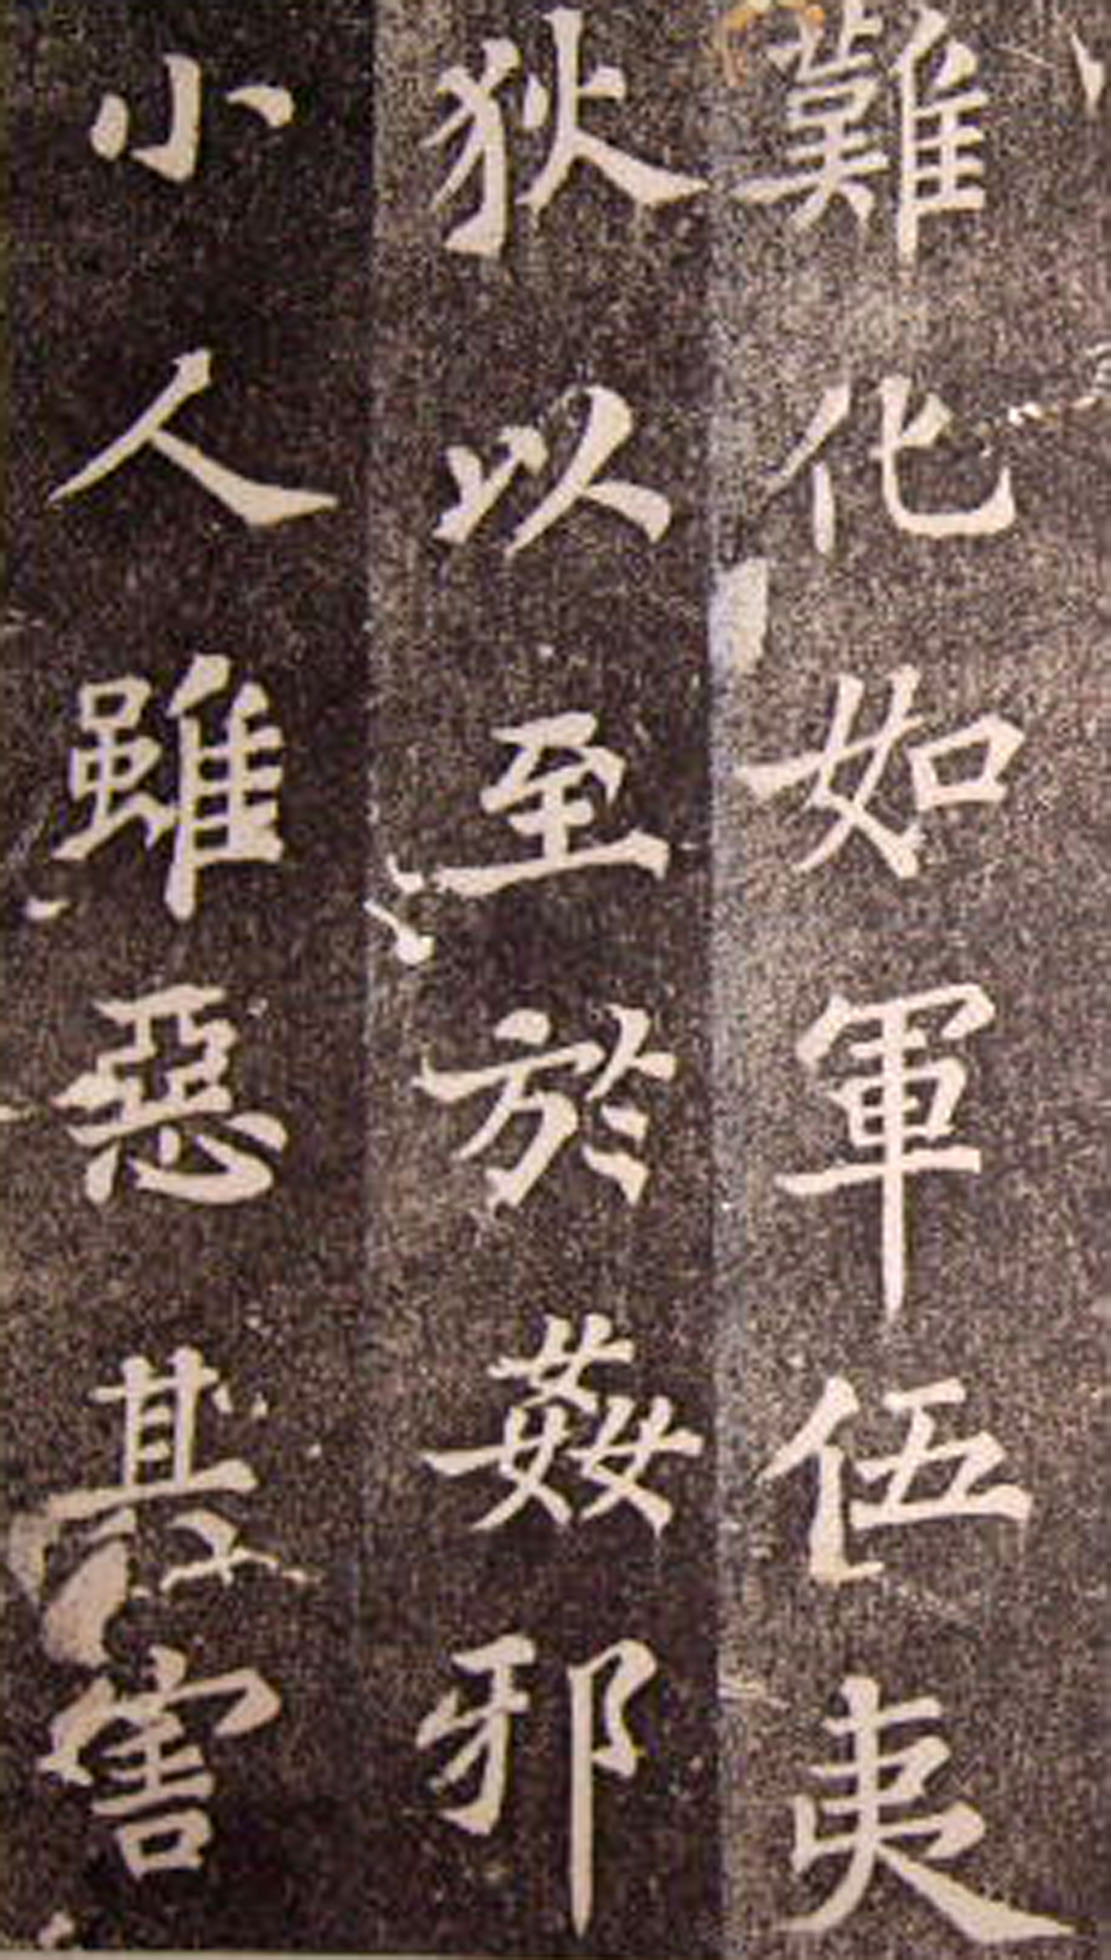 難化如軍伍夷
狄以至於姦邪
小人雖惡甚害